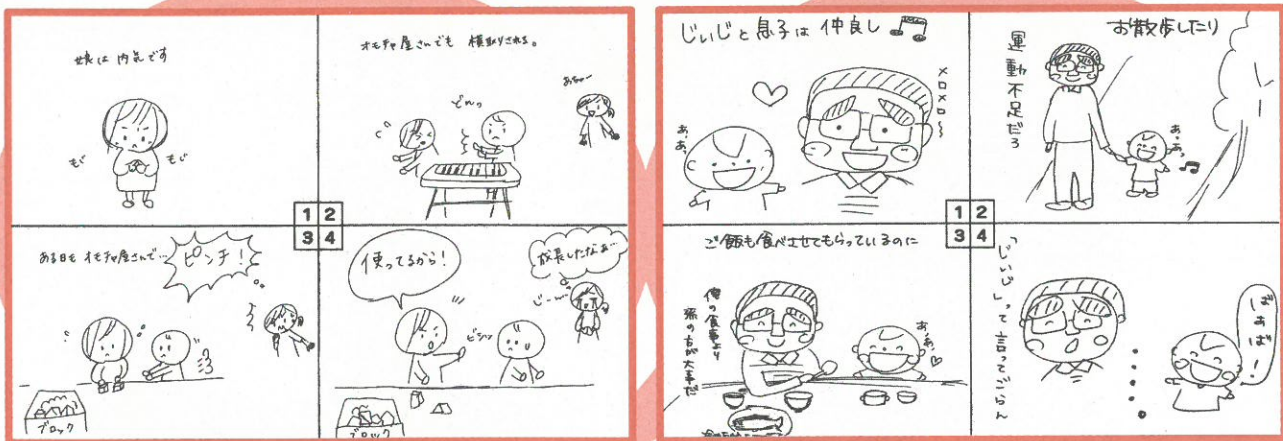 娘は内気です
もじ
もじ
オモチャ屋さんでも横取りされる。
どんっ
あちゃー
1 2
3 4
ある日もオモチャ屋さんで…
ピンチ！
ブロック
使ってるから！
ビシッ
成長したなぁ…
じーん
ブロック
じぃじと息子は仲良し
メロメロ〜
あ、あ、
お散歩したり
運動不足だろ
あ、あ、
1 2
3 4
ご飯も食べさせてもらっているのに
俺の食事より
孫の方が大事だ
あ、あ、
「じぃじ」って言ってごらん
ばぁば！